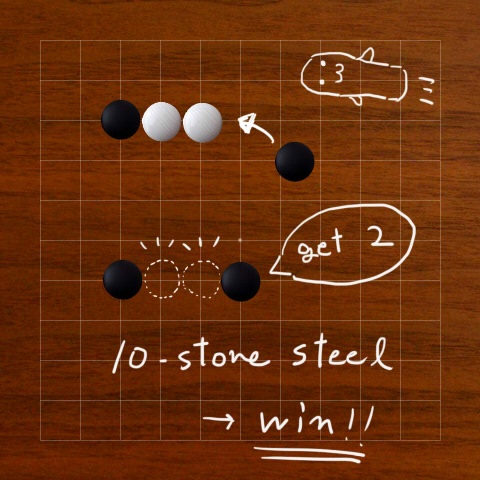 :3
get 2
10-stone steel
→ win!!